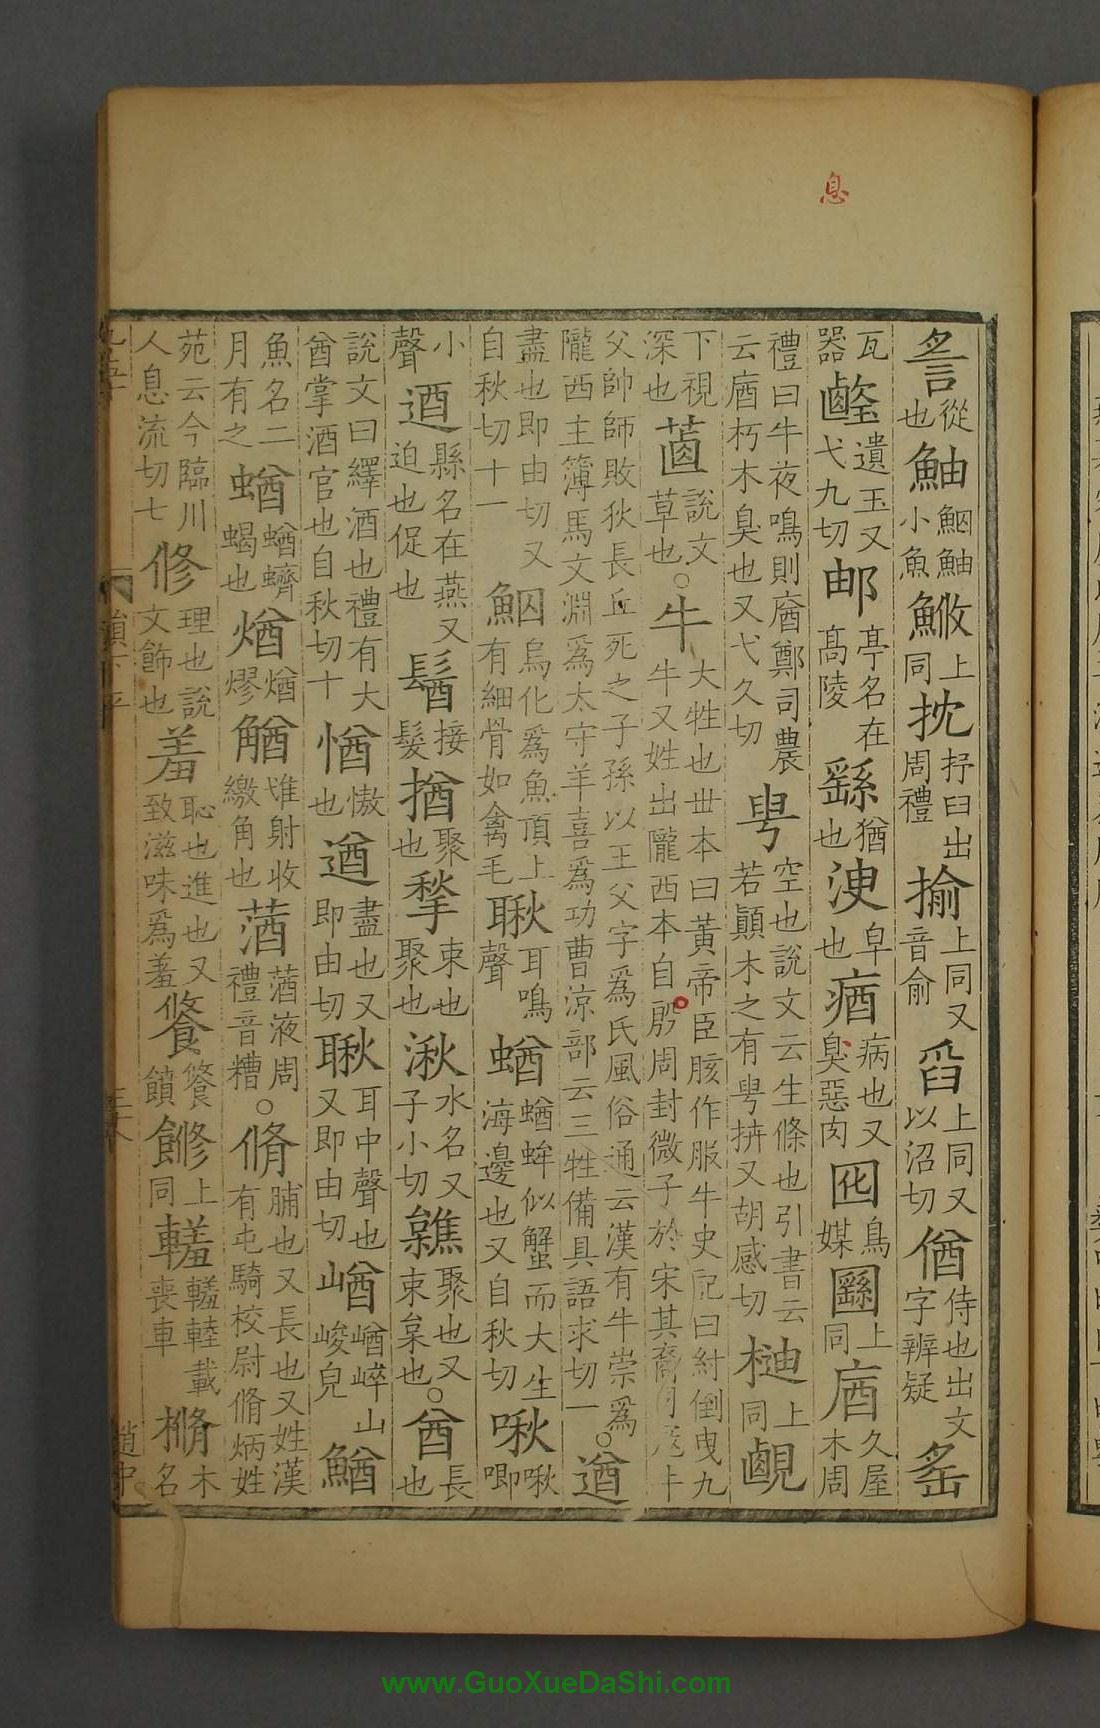 息
䚻從也鮋鮂鮋小魚䱂上同抌抒臼出周禮揄上同又音俞舀上同又以沼切偤侍也出文字辨疑䍃
瓦器𪉹遺玉又弋九切邮亭名在高陵繇猶也浀皁也㾞病也又臭惡肉囮鳥媒圝上同庮久屋木周
禮曰牛夜鳴則庮鄭司農云庮朽木臭也又弋久切甹空也說文云生條也引書云若顚木之有甹枿又胡感切㮲上同𧡷
下視深也莤說文草也○牛大牲也丗本曰黃帝臣胲作服牛史記曰紂倒曳九牛又姓出隴西本自殷周封微子於宋其裔
父帥師敗狄長丘死之子孫以王父字爲氏風俗通云漢有牛崇爲隴西主簿馬文淵爲太守羊喜爲功曹涼部云三牲備具語求切一○遒
盡也即由切又自秋切十一鮂烏化爲魚頂上有細骨如禽毛聧耳鳴聲蝤蝤蛑似蟹而大生海邊也又自秋切啾啾唧
小聲逎縣名在燕又迫也促也䰍接髮揂聚也揫束也聚也湫水名又子小切䊒聚也又束枲也○酋長也
說文曰繹酒也禮有大酋掌酒官也自秋切十㥢慠也遒盡也又即由切聧耳中聲也又即由切崷崷崪山峻皃鰌
魚名二月有之蝤蝤蠐蝎也煪煪熮䚇惟射收繳角也蕕蕕液周禮音糟○脩脯也又長也又姓漢有屯騎校尉脩炳姓
苑云今臨川人息流切七修理也說文飾也羞恥也進也又致滋味爲羞餐餐饋饈上同䡭䡭䡜載喪車樇木名
趙中
www.GuoXueDaShi.com